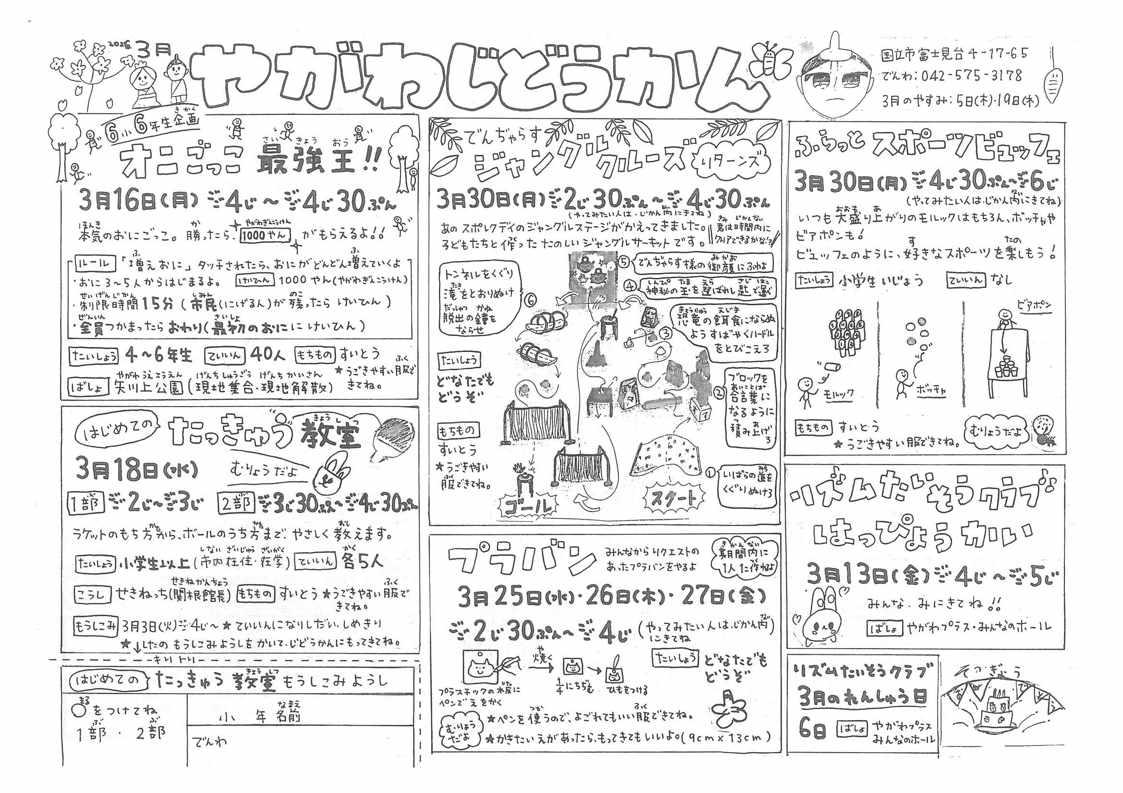 2026 3月
やがわじどうかん
国立市富士見台4-17-65
でんわ:042-575-3178
3月のやすみ:5日(木)・19日(木)
6小6年生企画
オニごっこ 最強王!!
3月16日(月)ごご4じ~ごご4じ30ぷん
本気のおにごっこ。勝ったら、1000やんがもらえるよ!!
ルール 「増えおに」タッチされたら、おにがどんどん増えていくよ
・おに3~5人からはじまるよ。 けいひん 1000やん(やがわぎんこうけん)
・制限時間15分(市民(にげる人)が残ったらけいひん)
・全員つかまったらおわり(最初のおににけいひん)
たいしょう 4~6年生 ていいん 40人 もちもの すいとう
★うごきやすい服できてね。
ばしょ 矢川上公園(現地集合・現地解散)
はじめてのたっきゅう教室
3月18日(水) むりょうだよ
1部 ごご2じ~ごご3じ 2部 ごご3じ30ぷん~ごご4じ30ぷん
ラケットのもち方から、ボールのうち方まで、やさしく教えます。
たいしょう 小学生以上(市内在住・在学) ていいん 各5人
こうし せきねっち(関根館長) もちもの すいとう ★うごきやすい服できてね。
もうしこみ 3月3日(火)ごご4じ~ ★ていいんになりしだい、しめきり
★↓したのもうしこみようしをかいて、じどうかんにもってきてね。
キリトリ
はじめてのたっきゅう教室もうしこみようし
○をつけてね
1部・2部
小 年 名前
でんわ
でんぢゃらす
ジャングルクルーズ リターンズ
3月30日(月)ごご2じ30ぷん~ごご4じ30ぷん
(やってみたい人は、じかん内にきてね)
あのスポレクデイのジャングルステージがかえってきました。
子どもたちと作ったたのしいジャングルサーキットです。
君は時間内にクリアできるかな!?
⑤ でんぢゃらす様の御顔にふれよ
④ 神秘の玉を選ばれし匙で運べ
トンネルをくぐり滝をとおりぬけ脱出の鐘をならせ
⑥
③ 恐竜の餌食にならぬようすばやくハードルをとびこえろ
② ブロックを合言葉になるように積み上げろ
① いばらの道をくぐりぬけろ
たいしょう
どなたでもどうぞ
もちもの
すいとう
★うごきやすい服できてね。
ゴール
スタート
プラバン
みんなからリクエストのあったプラバンをやるよ
期間内に1人1こ作れるよ
3月25日(水)・26日(木)・27日(金)
ごご2じ30ぷん~ごご4じ (やってみたい人は、じかん内にきてね)
焼く
プラスチックの板にペンでえをかく
1/4にちぢむ
ひもをつける
たいしょう どなたでもどうぞ
むりょうだよ
★ペンを使うので、よごれてもいい服できてね。
★かきたいえがあったら、もってきてもいいよ。(9cm×13cm)
ふらっとスポーツビュッフェ
3月30日(月)ごご4じ30ぷん~ごご6じ
(やってみたい人は、じかん内にきてね)
いつも大盛り上がりのモルックはもちろん、ボッチャや
ビアポンも!
ビュッフェのように、好きなスポーツを楽しもう!
たいしょう 小学生いじょう ていいん なし
ビアポン
モルック
ボッチャ
もちもの すいとう
★うごきやすい服できてね。
むりょうだよ
リズムたいそうクラブ
はっぴょうかい
3月13日(金)ごご4じ~ごご5じ
みんな、みにきてね!!
ばしょ やがわプラス・みんなのホール
リズムたいそうクラブ
3月のれんしゅう日
6日 ばしょ やがわプラスみんなのホール